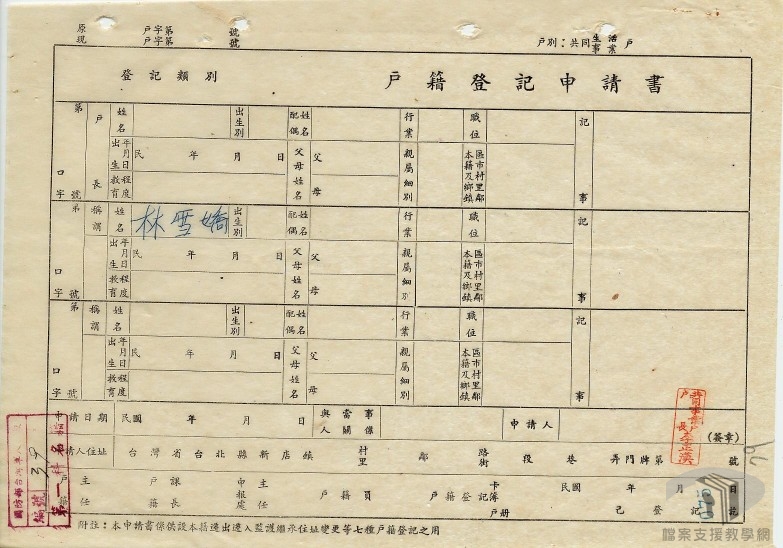 原 戶字第 號
現 戶字第 號
戶別：共同生活事業戶
登記類別 戶籍登記申請書
第 口字 號 戶長 姓名 出生別 配偶姓名 行業 職位 記事
出生年月日 民 年 月 日 父母姓名 父 母 親屬細別 本籍及鄉鎮區市村里鄰
教育程度
第 口字 號 稱謂 姓名 林雪嬌 出生別 配偶姓名 行業 職位 記事
出生年月日 民 年 月 日 父母姓名 父 母 親屬細別 本籍及鄉鎮區市村里鄰
教育程度
第 口字 號 稱謂 姓名 出生別 配偶姓名 行業 職位 記事
出生年月日 民 年 月 日 父母姓名 父 母 親屬細別 本籍及鄉鎮區市村里鄰
教育程度
申請日期 民國 年 月 日 與當事人關係 申請人 (簽章)
共同事業戶戶長
請人住址 台灣省台北縣新店鎮 村里 鄰 路街 段 巷 弄門牌第 號
戶籍主任 戶籍課長 申報主任 戶籍員 戶籍登記卡簿戶册 民國 年 月 日 已登記
附註：本申請書係供設本籍遷出遷入監護繼承住址變更等七種戶籍登記之用
編號 39
檔案支援教學網